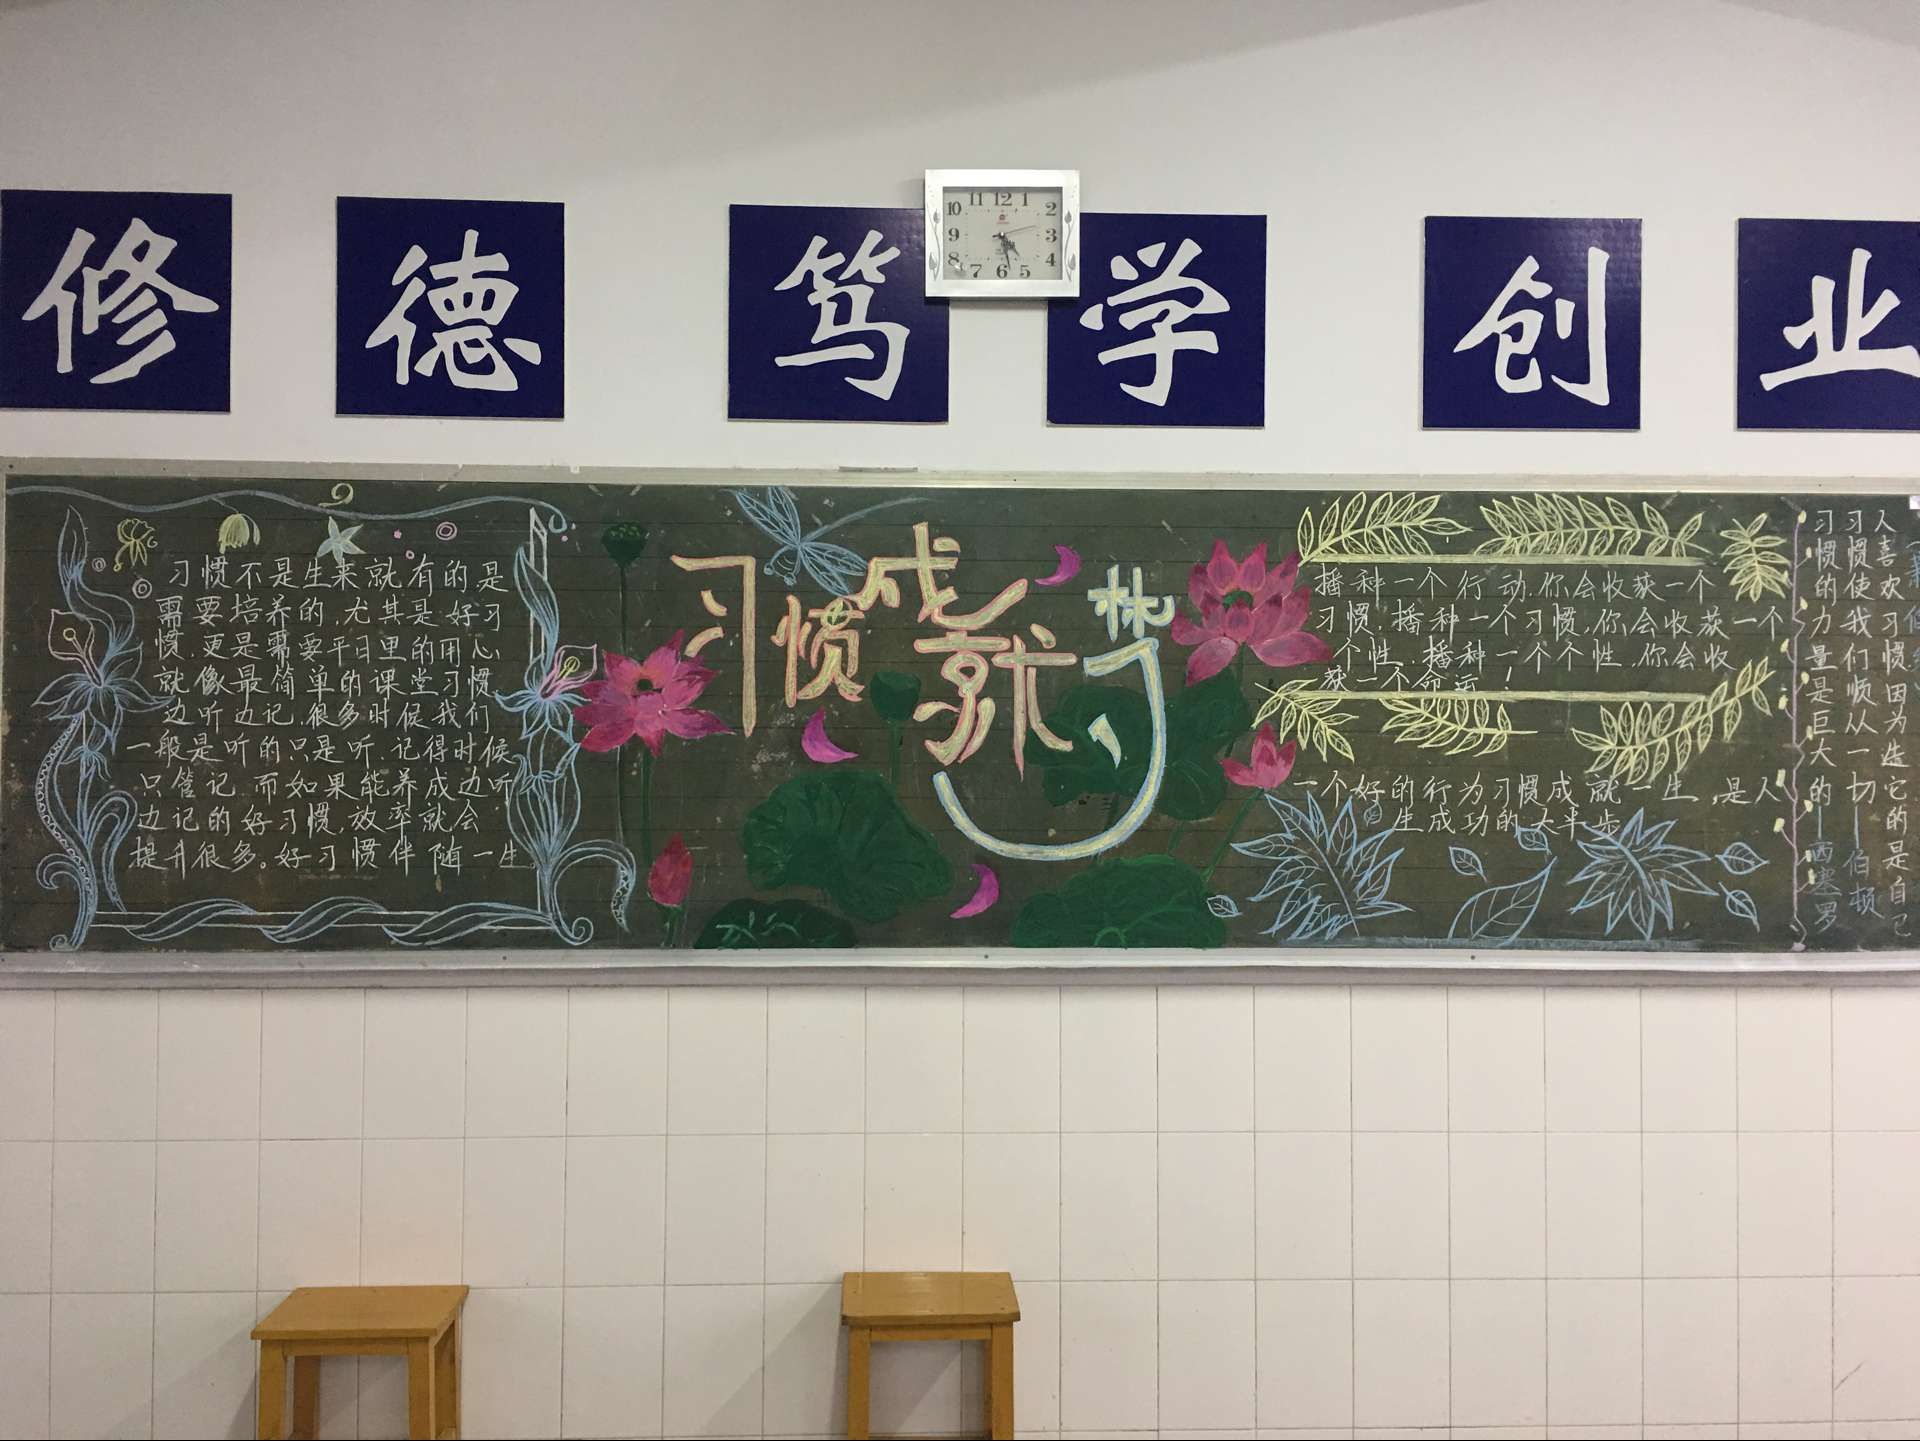 修德笃学创业
11 12 1
10 2
9 3
8 4
7 6 5
习惯不是生来就有的是
需要培养的,尤其是好习
惯,更是需要平日里的用心
就像最简单的课堂习惯
边听边记,很多时候我们
一般是听的只是听,记得时候
只管记,而如果能养成边听
边记的好习惯,效率就会
提升很多。好习惯伴随一生
习惯成就梦
播种一个行动,你会收获一个
习惯,播种一个习惯,你会收获一个
个性,播种一个个性,你会收
获一个命运!
一个好的行为习惯成就一生,是人
生成功的大半步
习惯的力量是巨大的——西塞罗
习惯使我们顺从一切——伯顿
人喜欢习惯因为造它的是自己